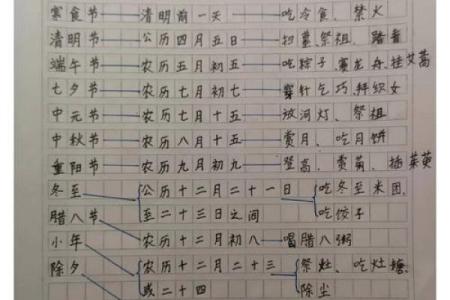 寒食节——清明前一天——吃冷食、禁火
清明节——公历四月五日——扫墓、祭祖、踏青
端午节——农历五月初五——吃粽子、赛龙舟、挂艾蒿
七夕节——农历七月初七——穿针乞巧、拜织女
中元节——农历七月十五——放河灯、祭祖
中秋节——农历八月十五——赏月、吃月饼
重阳节——农历九月初九——登高、赏菊、插茱萸
冬至 公历十二月二十一日 吃冬至米团、
至二十三日之间 吃饺子
腊八节——农历十二月初八——喝腊八粥
小年 农历十二月二十三 祭灶、吃灶糖、
除夕 或二十四 除尘